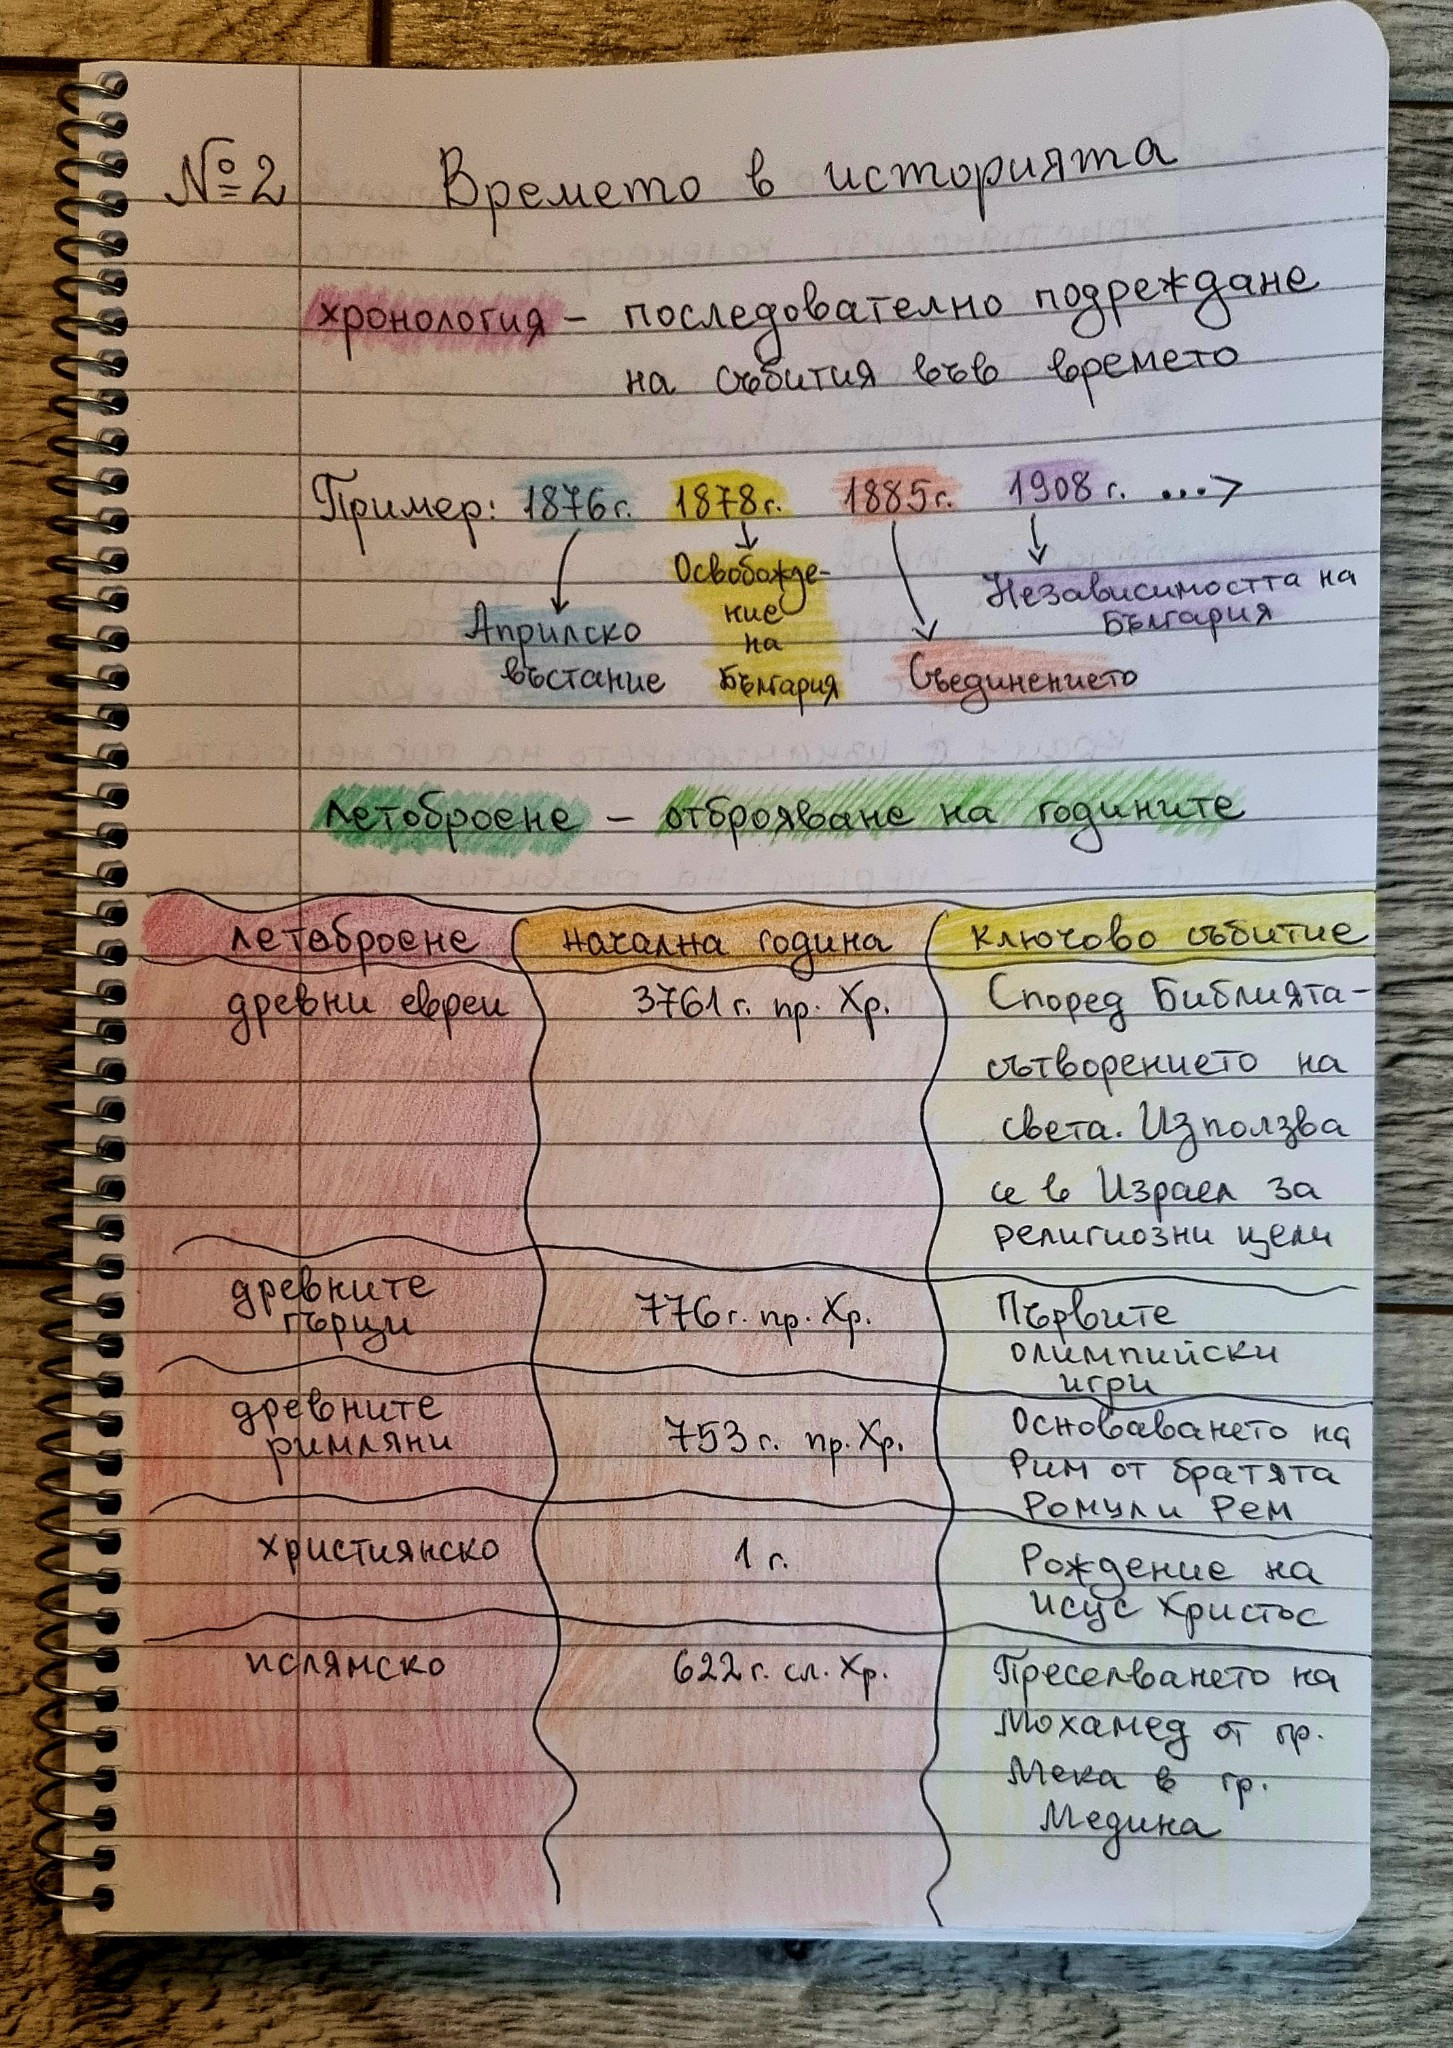 №2 Времето в историята
хронология – последователно подреждане
на събития във времето
Пример: 1876г. 1878г. 1885г. 1908г. ...>
Априлско
въстание
Освобожде-
ние
на
България
Съединението
Независимостта на
България
летоброене – отброяване на годините
летоброене начална година ключово събитие
древни евреи 3761г. пр. Хр. Според Библията-
сътворението на
света. Използва
се в Израел за
религиозни цели
древните
гърци
776г. пр. Хр.
Първите
олимпийски
игри
древните
римляни
753г. пр. Хр.
Основаването на
Рим от братята
Ромул и Рем
християнско 1 г. Рождение на
Исус Христос
ислямско 622г. сл. Хр. Преселването на
Мохамед от гр.
Мека в гр.
Медина